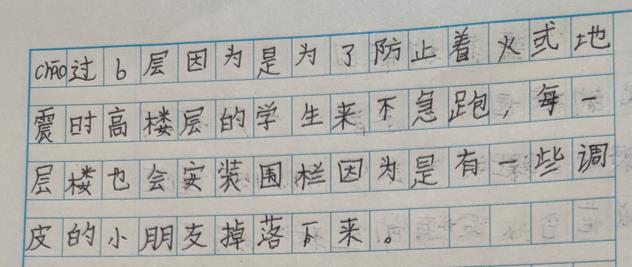 chāo过6层因为是为了防止着火或地
震时高楼层的学生来不急跑，每一
层楼也会实装围栏因为是有一些调
皮的小朋友掉落下来。